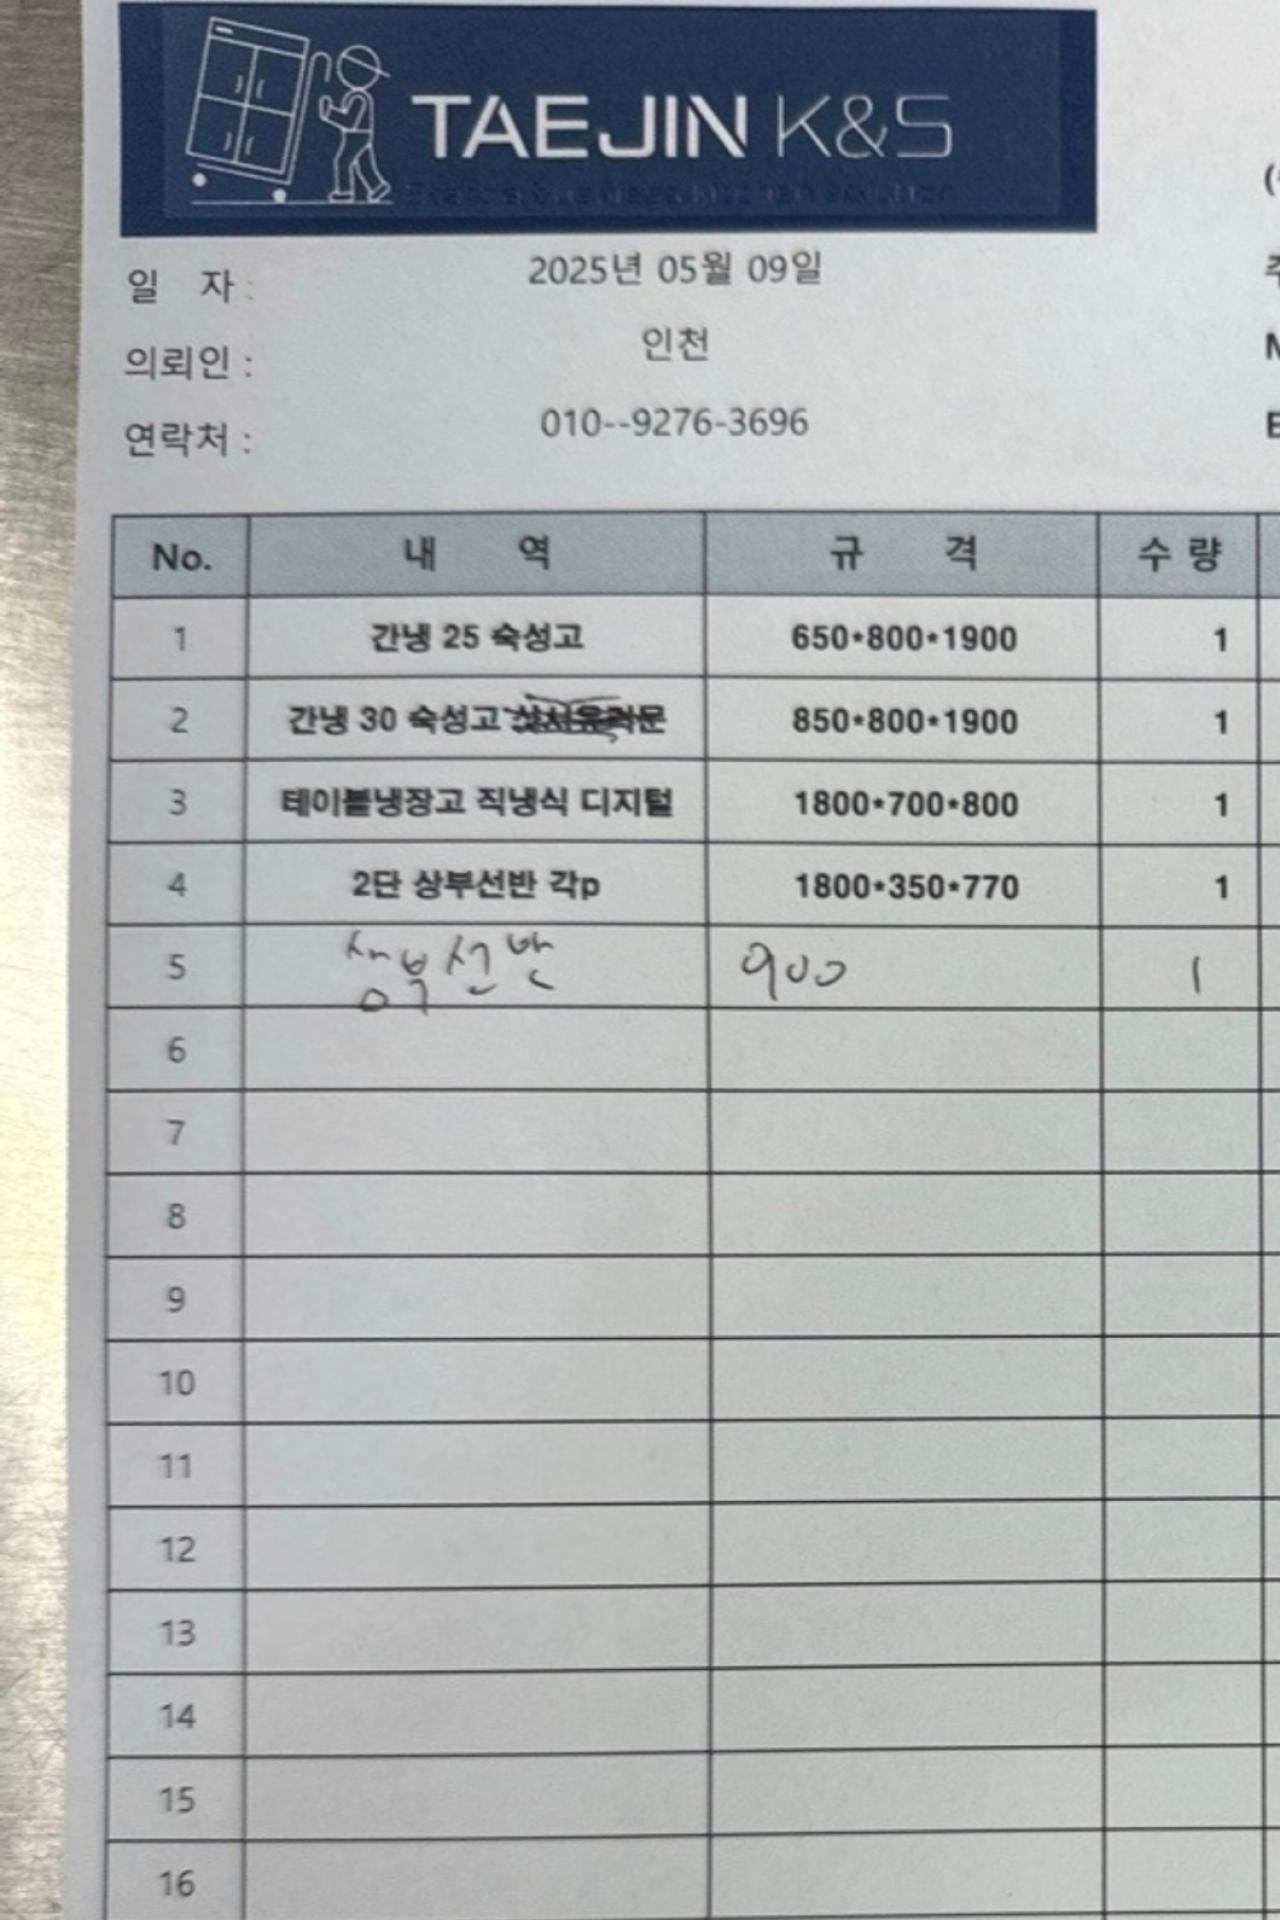 TAEJIN K&S
일 자 : 2025년 05월 09일
의뢰인 : 인천
연락처 : 010--9276-3696
No. 내 역 규 격 수 량
1 간냉 25 숙성고 650*800*1900 1
2 간냉 30 숙성고 850*800*1900 1
3 테이블냉장고 직냉식 디지털 1800*700*800 1
4 2단 상부선반 각p 1800*350*770 1
5 상부선반 900 1
6
7
8
9
10
11
12
13
14
15
16